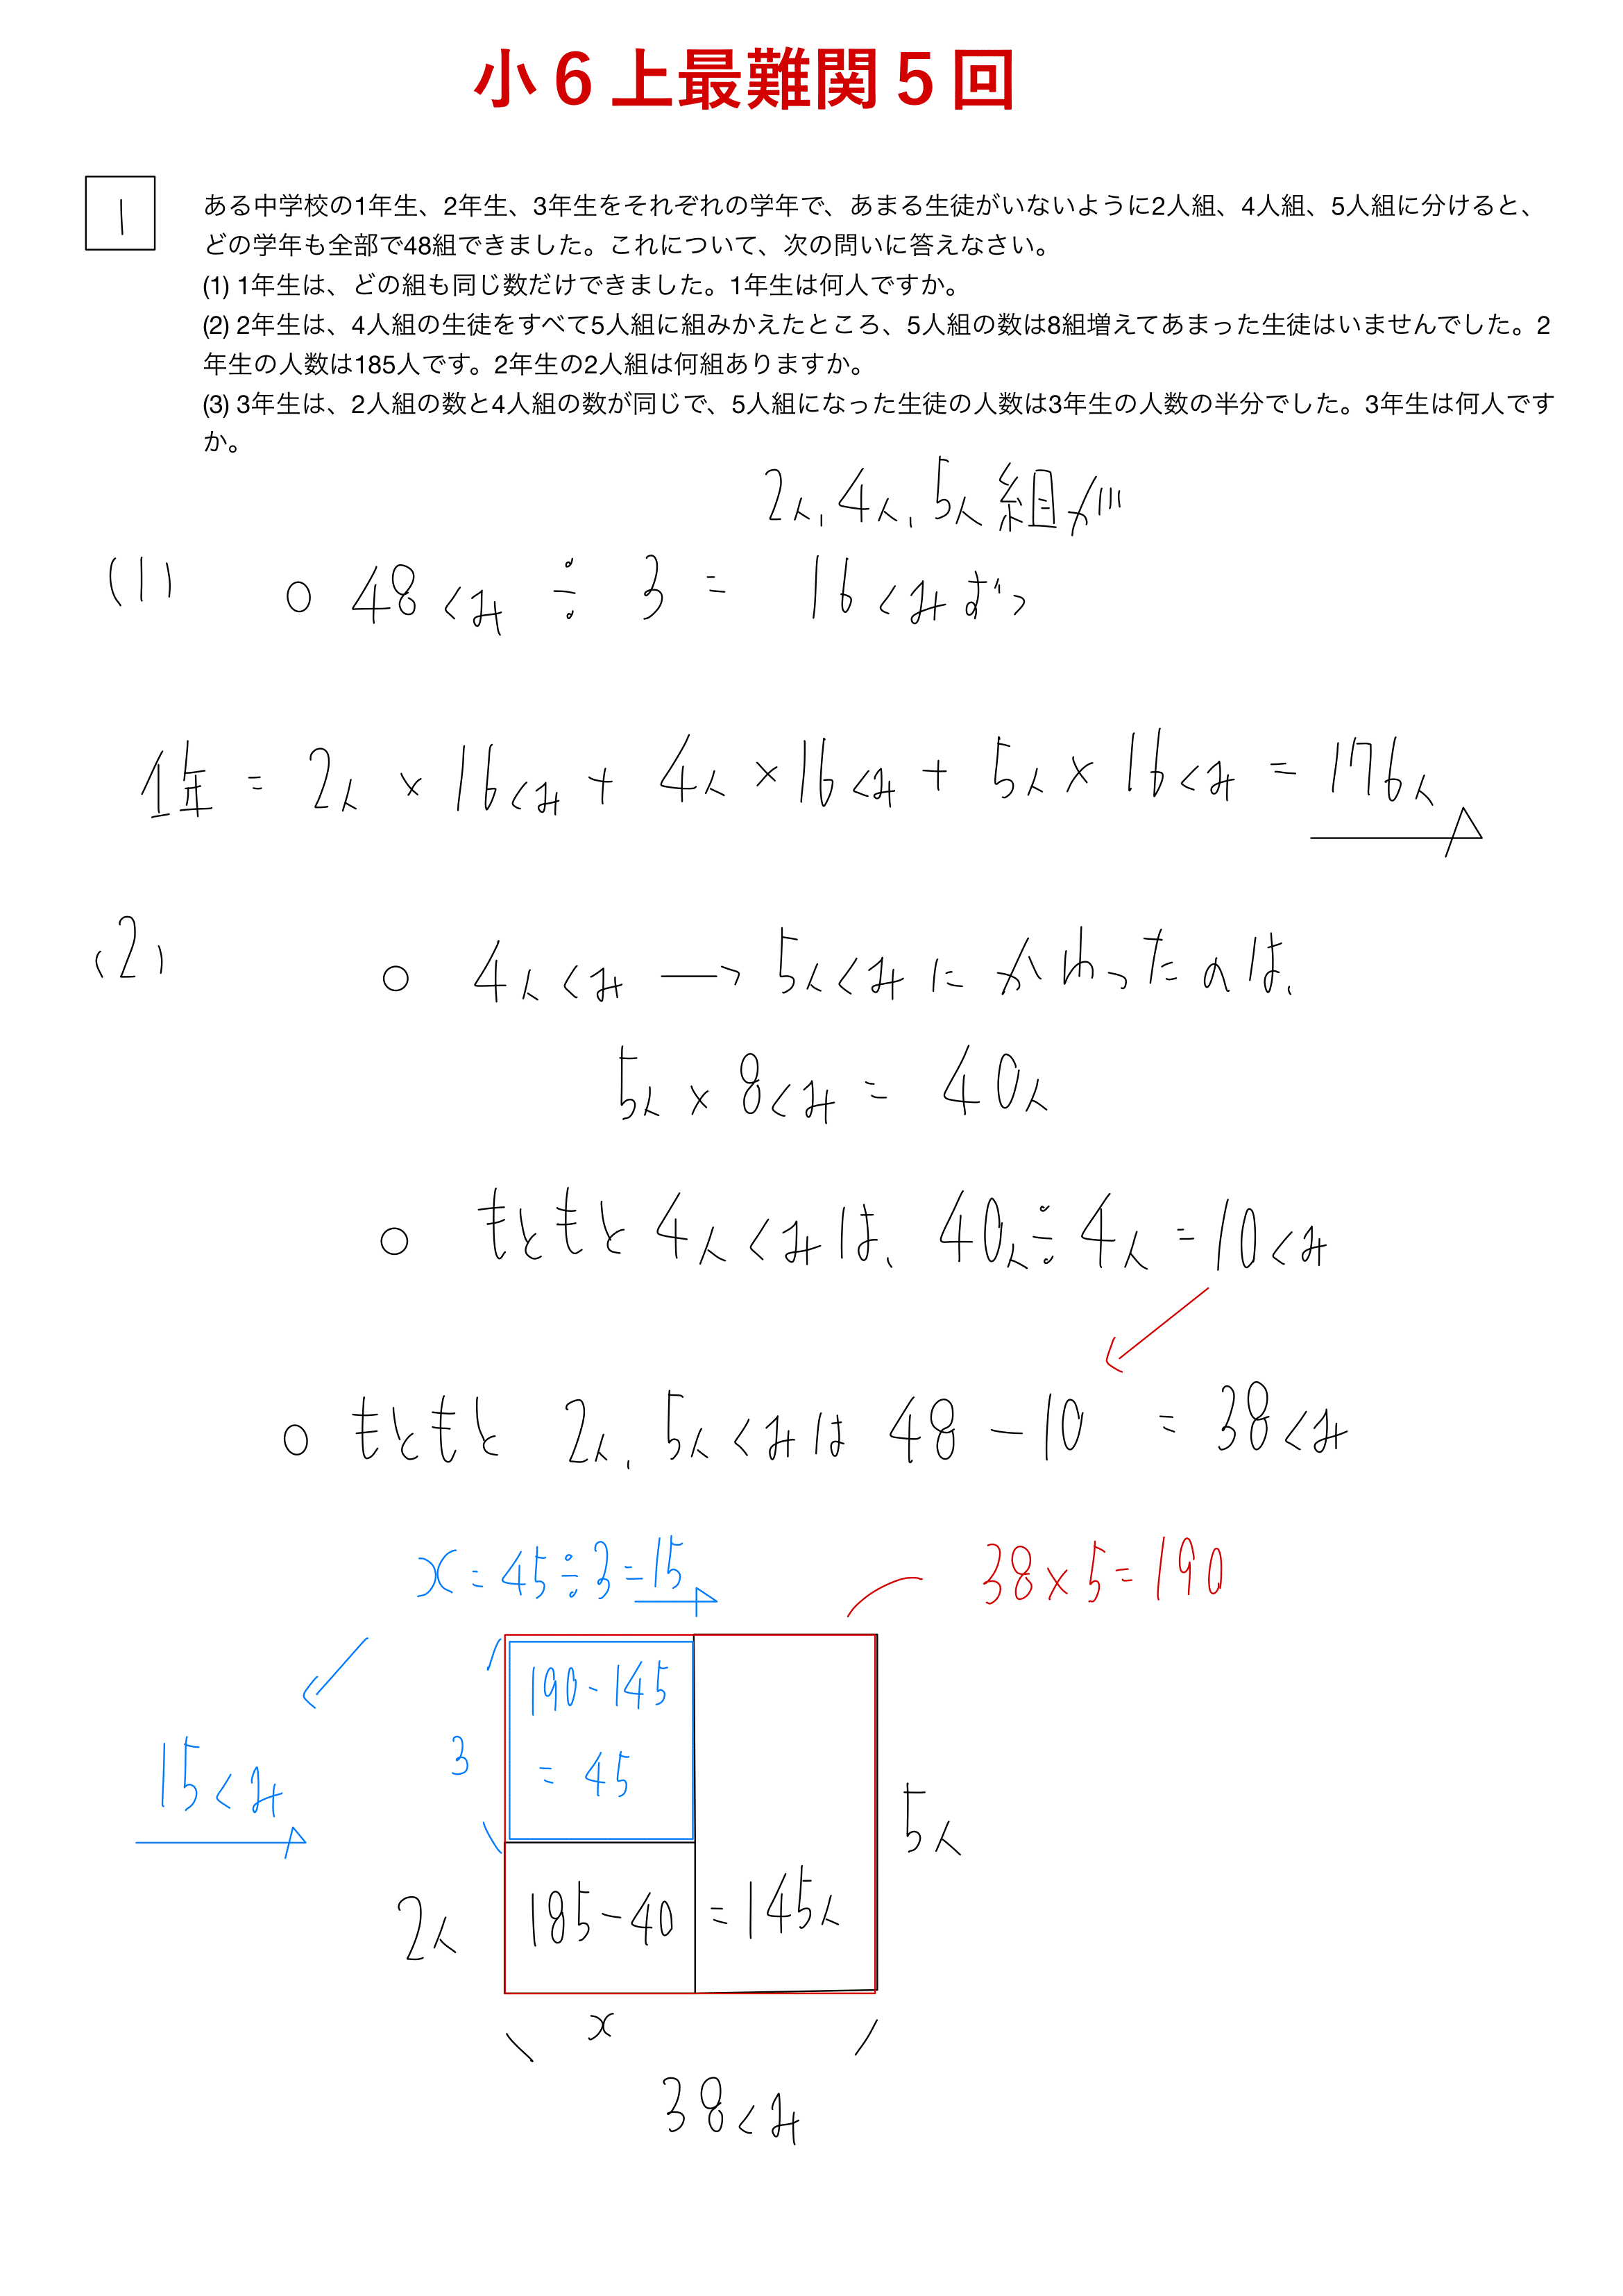 小6上最難関5回
1
ある中学校の1年生、2年生、3年生をそれぞれの学年で、あまる生徒がいないように2人組、4人組、5人組に分けると、
どの学年も全部で48組できました。これについて、次の問いに答えなさい。
(1) 1年生は、どの組も同じ数だけできました。1年生は何人ですか。
(2) 2年生は、4人組の生徒をすべて5人組に組みかえたところ、5人組の数は8組増えてあまった生徒はいませんでした。2
年生の人数は185人です。2年生の2人組は何組ありますか。
(3) 3年生は、2人組の数と4人組の数が同じで、5人組になった生徒の人数は3年生の人数の半分でした。3年生は何人です
か。
2人,4人,5人組が
(1) ○ 48くみ ÷ 3 = 16くみずつ
1年 = 2人 × 16くみ + 4人 × 16くみ + 5人 × 16くみ = 176人
(2) ○ 4人くみ → 5人くみにかわったのは、
5人 × 8くみ = 40人
○ もともと4人くみは、40人÷4人=10くみ
○ もともと 2人、5人くみは 48-10 = 38くみ
x=45÷3=15
38×5=190
190-145
= 45
3
15くみ
5人
2人
185-40=145人
x
38くみ